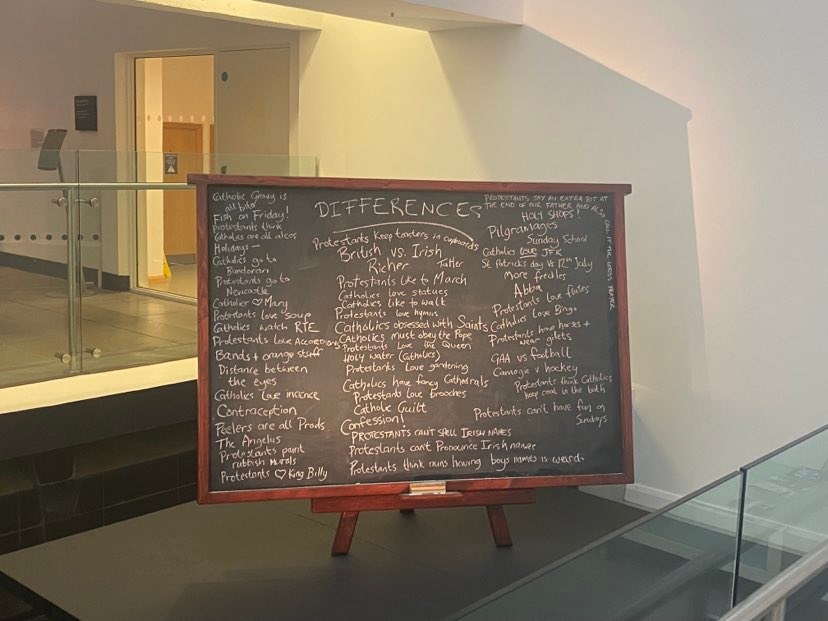 DIFFERENCES
Catholic Gravy is
all bisto
Fish on Friday!
Protestants think
Catholics are all alcos
Holidays -
Catholics go to
Bundoran
Protestants go to
Newcastle
Catholics ♡ Mary
Protestants love soup
Catholics watch RTE
Protestants Love Accordions
Bands + orange stuff
Distance between
the eyes
Catholics Love incence
Contraception
Peelers are all Prods
The Angelus
Protestants paint
rubbish murals
Protestants ♡ King Billy
Protestants Keep toasters in cupboards
British vs. Irish
Richer Taller
Protestants Like to March
Catholics love statues
Catholics like to walk
Protestants love hymns
Catholics obsessed with Saints
Catholics must obey the Pope
Protestants Love the Queen
Holy water (Catholics)
Protestants Love gardening
Catholics have fancy Cathedrals
Protestants Love brooches
Catholic Guilt
Confession!
PROTESTANTS CAN'T SPELL IRISH NAMES
Protestants can't Pronounce Irish names
Protestants think nuns having boys names is weird.
PROTESTANTS SAY AN EXTRA BIT AT
THE END OF OUR FATHER AND ALSO
CALL IT THE LORDS PRAYER
HOLY SHOPS!
Pilgramages
Sunday School
Catholics LOVE JFK
St. Patricks day vs 12th July
More freckles
Abba
Protestants love flutes
Catholics Love Bingo
Protestants have horses +
wear gilets
GAA vs football
Camogie v hockey
Protestants think Catholics
keep coal in the bath
Protestants can't have fun on
Sundays